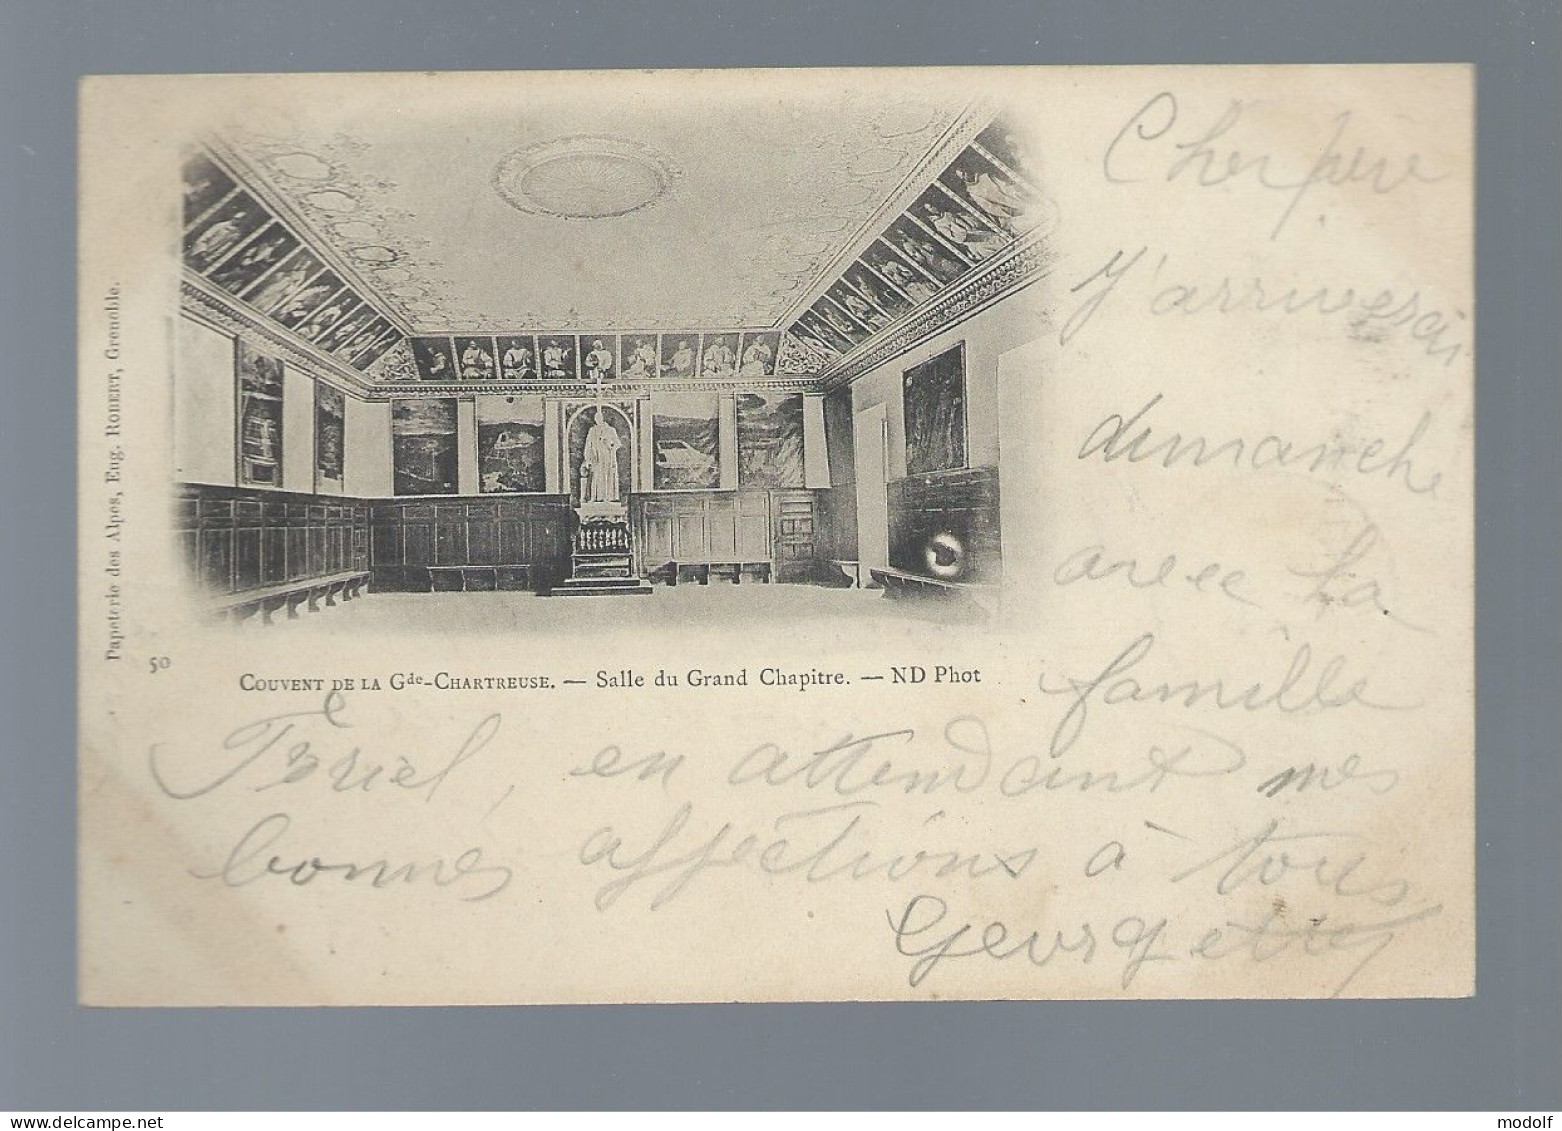 Papeterie des Alpes, Eug. ROBERT, Grenoble.
50
COUVENT DE LA Gde-CHARTREUSE. — Salle du Grand Chapitre. — ND Phot
Cher père
J'arriverai
dimanche
avec la
famille
en attendant mes
bonnes affections à tous
Georgette
modolf